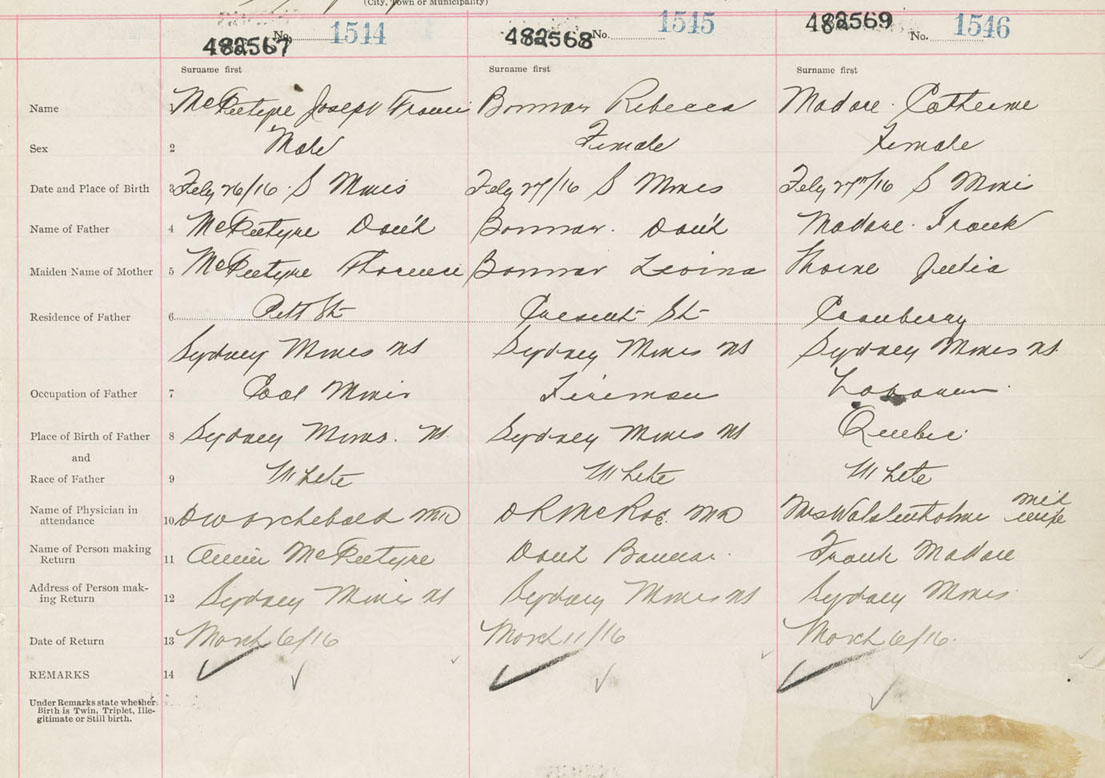 (City, Town or Municipality)
482567 No. 1514
482568 No. 1515
482569 No. 1546
Surname first Surname first Surname first
Name 1 Joseph Rebecca Madore Catherine
Sex 2 Male Female Female
Date and Place of Birth 3 Feby 26/16 S Mines Feby 27/16 S Mines Feby 27/16 S Mines
Name of Father 4 Madore Frank
Maiden Name of Mother 5 Florence
Residence of Father 6 Pitt St Cresent St Cranberry
Sydney Mines NS Sydney Mines NS Sydney Mines NS
Occupation of Father 7 Coal Miner Fireman
Place of Birth of Father 8 Sydney Mines NS Sydney Mines NS Quebec
and
Race of Father 9 White White White
Name of Physician in
attendance 10 DW Archibald MD D R McRae MD Mrs Mid
wife
Name of Person making
Return 11 Frank Madore
Address of Person mak-
ing Return 12 Sydney Mines NS Sydney Mines NS Sydney Mines
Date of Return 13 March 6/16 March 11/16 March 6/16
REMARKS 14
Under Remarks state whether
Birth is Twin, Triplet, Ille-
gitimate or Still birth.